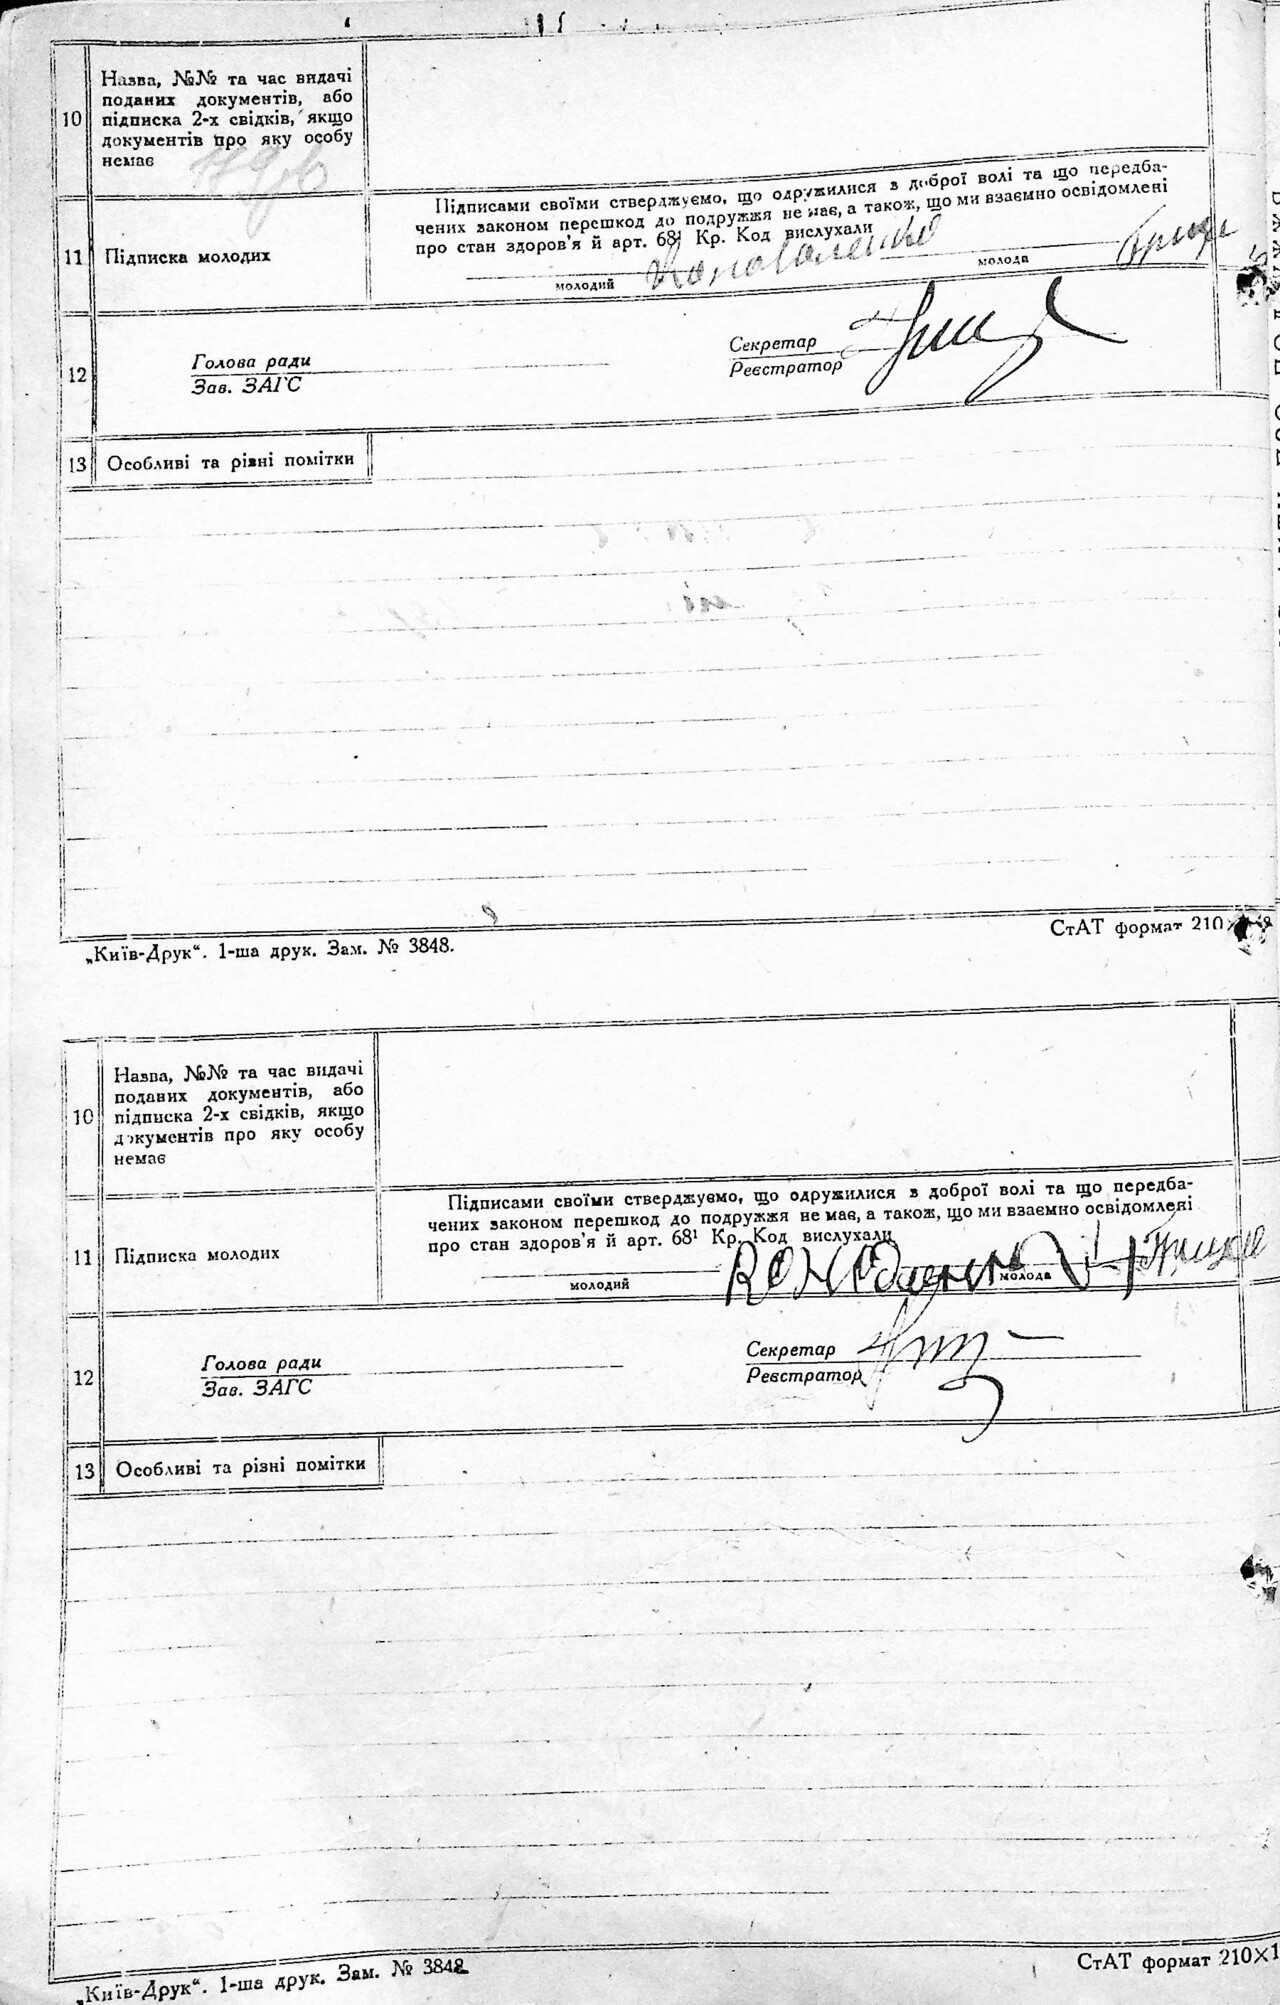 10
Назва, №№ та час видачі
поданих документів, або
підписка 2-х свідків, якщо
документів про яку особу
немає
11
Підписка молодих
Підписами своїми стверджуємо, що одружилися з доброї волі та що передба-
чених законом перешкод до подружжя не має, а також, що ми взаємно освідомлені
про стан здоров'я й арт. 68¹ Кр. Код вислухали
молодий
Коноваленко
молода
12
Голова ради
Зав. ЗАГС
Секретар
Реєстратор
13
Особливі та різні помітки
„Київ-Друк“. 1-ша друк. Зам. № 3848.
СтАТ формат 210×
10
Назва, №№ та час видачі
поданих документів, або
підписка 2-х свідків, якщо
документів про яку особу
немає
11
Підписка молодих
Підписами своїми стверджуємо, що одружилися з доброї волі та що передба-
чених законом перешкод до подружжя не має, а також, що ми взаємно освідомлені
про стан здоров'я й арт. 68¹ Кр. Код вислухали
молодий
молода
12
Голова ради
Зав. ЗАГС
Секретар
Реєстратор
13
Особливі та різні помітки
„Київ-Друк“. 1-ша друк. Зам. № 3848
СтАТ формат 210×1